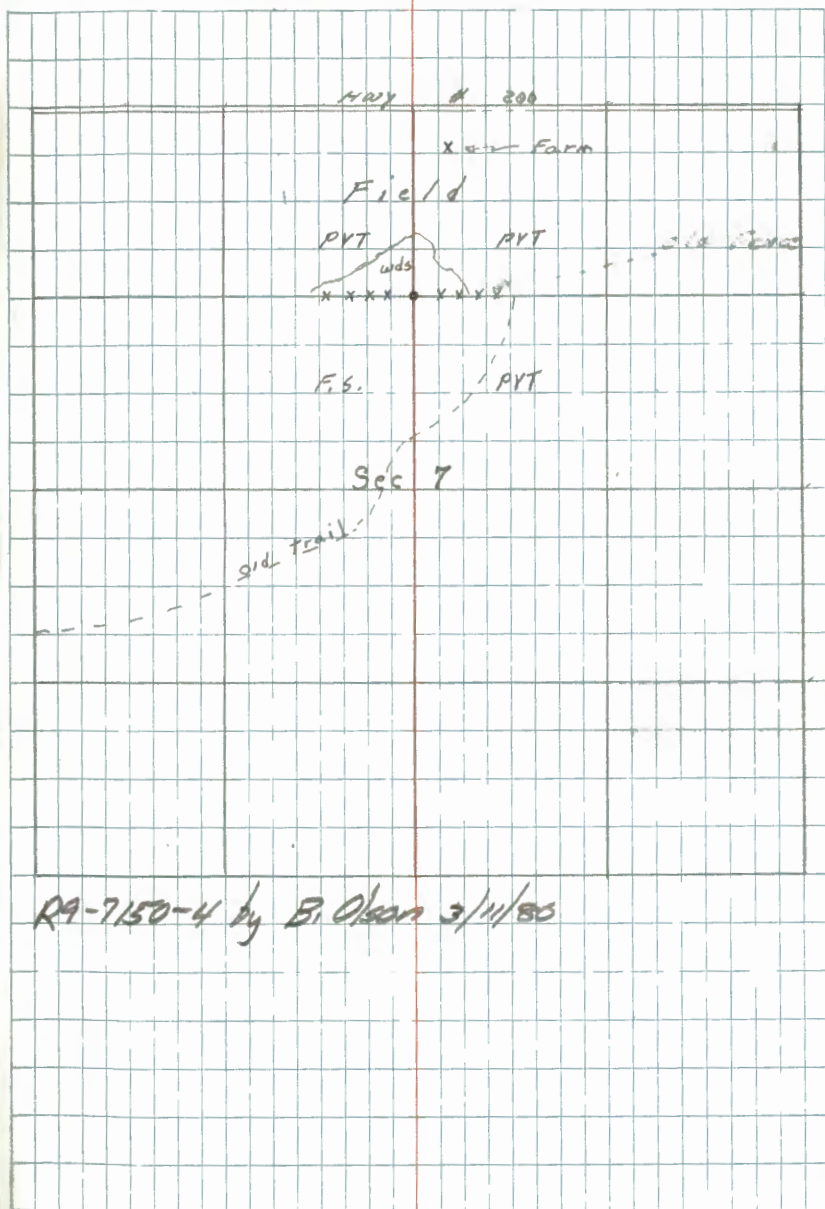 Hwy # 200
x ← Farm
Field
PVT PVT
wds
x x x x x x x x
F.S. PVT
Sec 7
old trail
R9-7150-4 by B. Olson 3/11/80